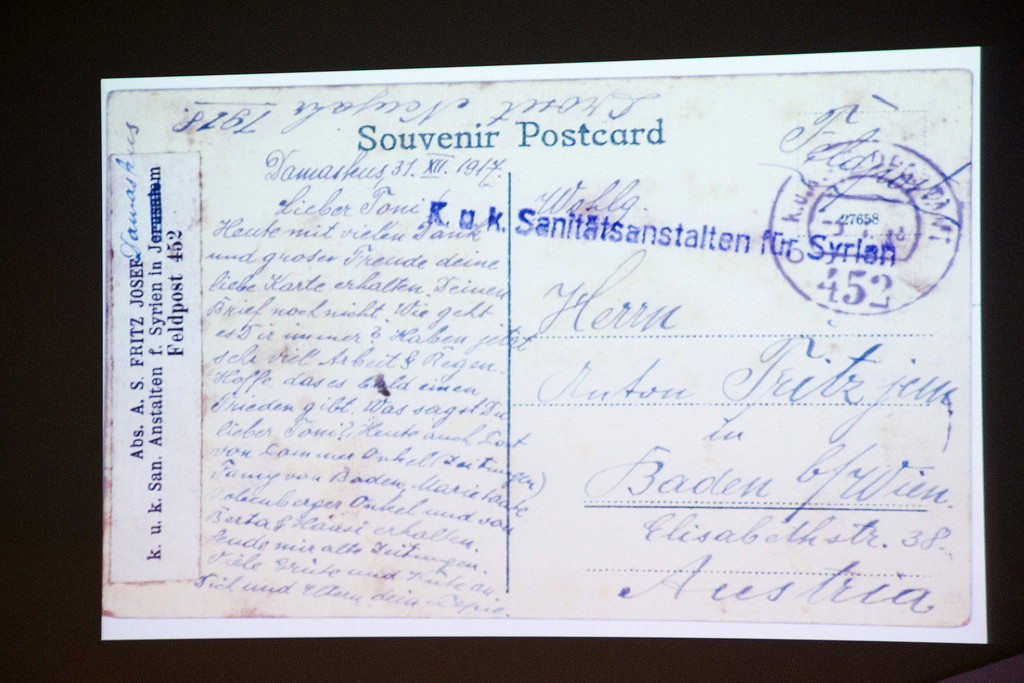 Prosit Neujahr 1918.
Souvenir Postcard
Abs. A. S. FRITZ JOSEF
k. u. k. San. Anstalten f. Syrien in Jerusalem Damaskus
Feldpost 452
Damaskus 31. XII. 1917.
Lieber Toni
Heute mit vielen Dank
und groser Freude deine
liebe Karte erhalten. Deinen
Brief noch nicht. Wie geht
es Dir immer? Haben jetzt
sehr viel Arbeit & Regen.
Hoffe das es bald einen
Frieden gibt. Was sagst Du
lieber Toni? Heute auch
von Onkel (Zeitungen)
von Baden, Marie Tante
Onkel und von
Berta & Hansi erhalten.
Sende mir alte Zeitungen.
Viele Grüße und Küße an
Dich und Eltern dein
Feldpost
K. u. k. Sanitätsanstalten für Syrien
k.u.k.
27658
452
Wohlg.
Herrn
Anton Fritz jun.
in
Baden b/Wien.
Elisabethstr. 38.
Austria